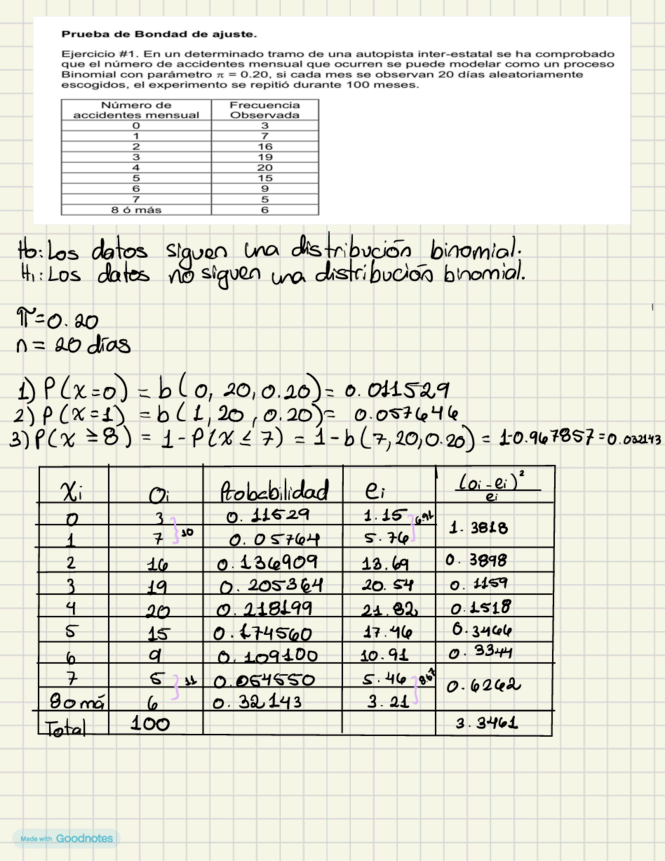 Prueba de Bondad de ajuste.
Ejercicio #1. En un determinado tramo de una autopista inter-estatal se ha comprobado
que el número de accidentes mensual que ocurren se puede modelar como un proceso
Binomial con parámetro π = 0.20, si cada mes se observan 20 días aleatoriamente
escogidos, el experimento se repitió durante 100 meses.
Número de accidentes mensual Frecuencia Observada
0 3
1 7
2 16
3 19
4 20
5 15
6 9
7 5
8 ó más 6
Ho: Los datos siguen una distribución binomial.
H1: Los datos no siguen una distribución binomial.
π = 0.20
n = 20 días
1) P(x=0) = b(0, 20, 0.20) = 0.011529
2) P(x=1) = b(1, 20, 0.20) = 0.057646
3) P(x ≥ 8) = 1 - P(x ≤ 7) = 1 - b(7, 20, 0.20) = 1-0.967857 = 0.032143
Xi Oi Probabilidad ei (oi - ei)²/ei
0 3 0.11529 1.15
10 6.91 1.3818
1 7 0.05764 5.76
2 16 0.136909 13.69 0.3898
3 19 0.205364 20.54 0.1159
4 20 0.218199 21.82 0.1518
5 15 0.174560 17.46 0.3466
6 9 0.109100 10.91 0.3344
7 5 0.054550 5.46
11 8.67 0.6262
8 o má 6 0.32143 3.21
Total 100 3.3461
1
Made with Goodnotes